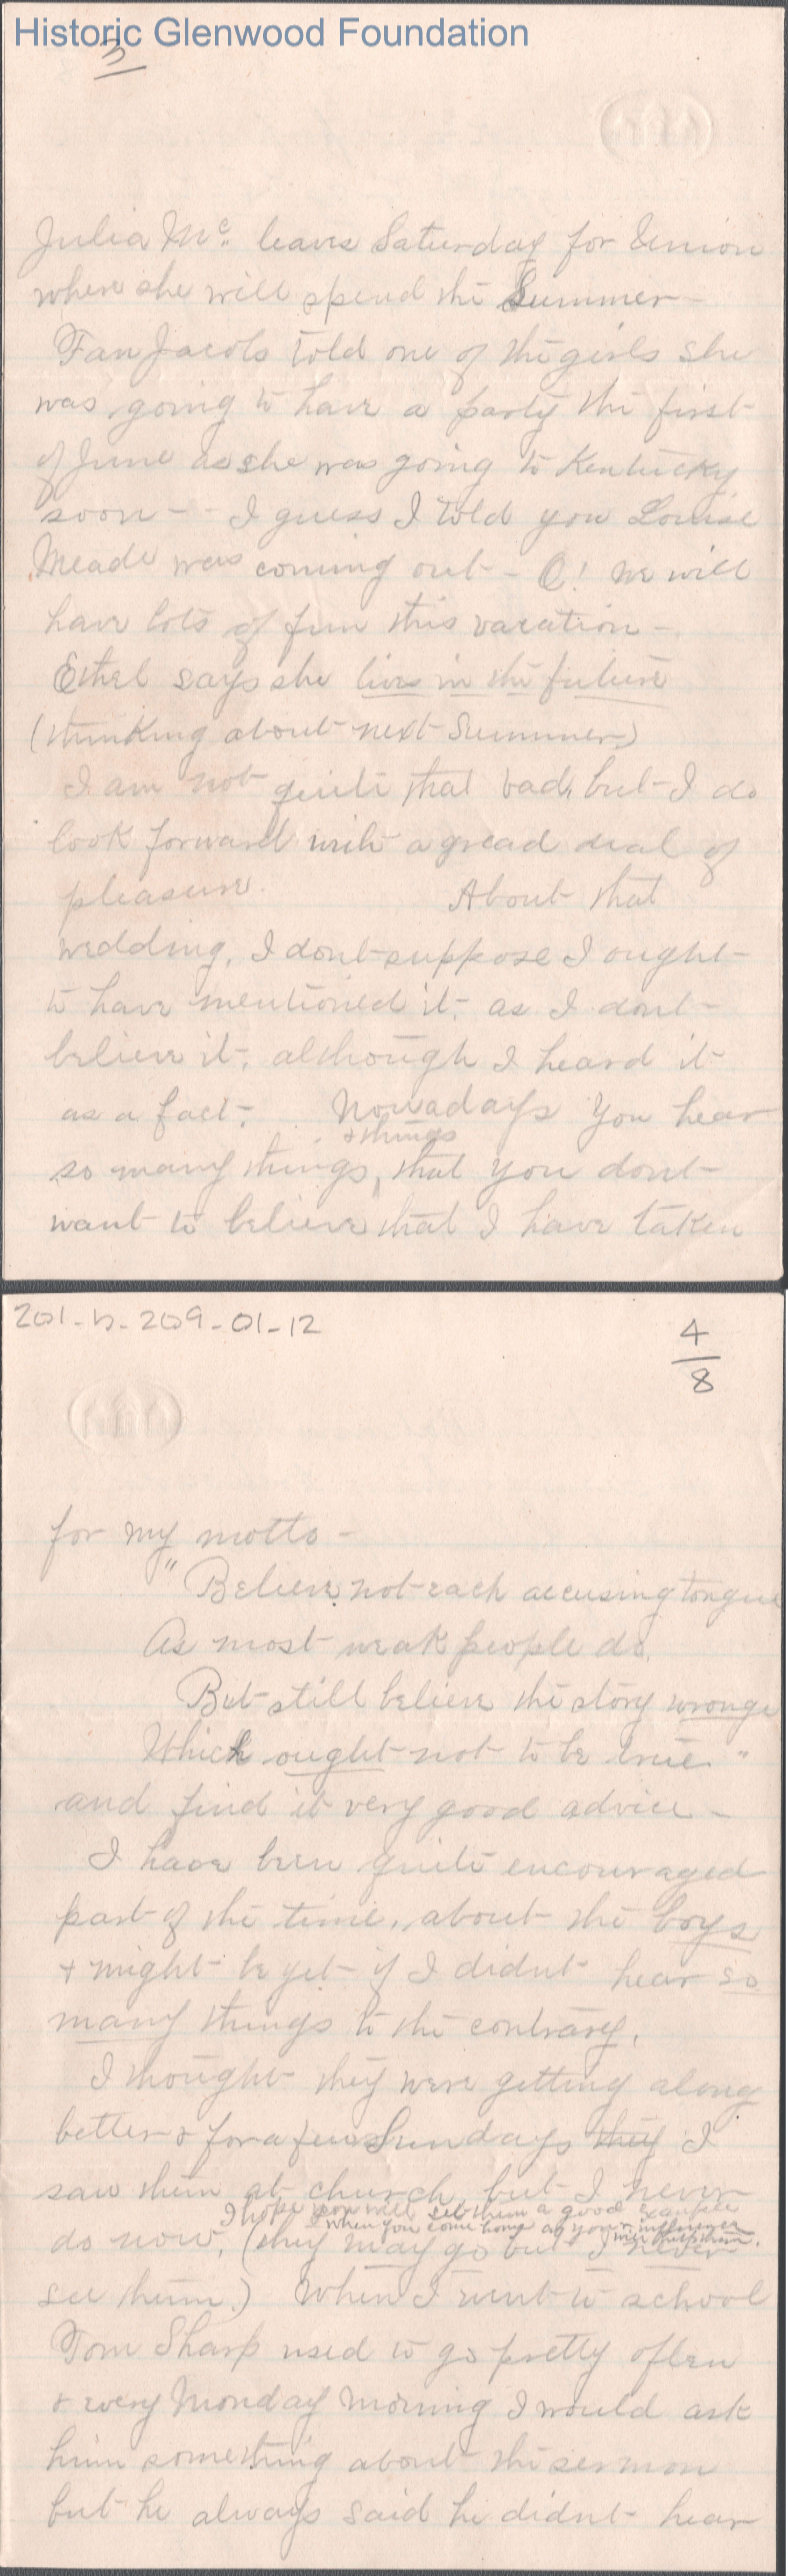 Historic Glenwood Foundation
3
Julia Mc. leaves Saturday for Union
where she will spend the Summer -
Fan Jacobs told one of the girls she
was going to have a party the first
of June as she was going to Kentucky
soon - - I guess I told you Louise
Meade was coming out - O! we will
have lots of fun this vacation -
Ethel says she lives in the future
(thinking about next Summer)
I am not quite that bad, but I do
look forward with a gread deal of
pleasure. About that
wedding, I dont suppose I ought
to have mentioned it, as I dont
believe it, although I heard it
as a fact. Nowadays you hear
+ things
so many things, that you dont
want to believe that I have taken
201-h-209-01-12
4
8
for my motto -
"Believe not each accusing tongue
As most weak people do,
But still believe the story wrong
Which ought not to be true."
and find it very good advice -
I have been quite encouraged
part of the time, about the boys
+ might be yet if I didnt hear so
many things to the contrary.
I thought they were getting along
better & for a few Sundays they I
saw them at church, but I never
I hope you will set them a good example
when you come home as your influence
will help them.
do now, (they may go but I never
see them.) When I went to school
Tom Sharp used to go pretty often
& every Monday morning I would ask
him something about the sermon
but he always said he didnt hear